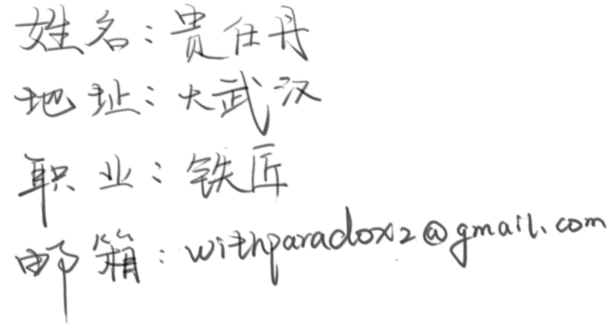 姓名：贵仕丹
地址：大武汉
职业：铁匠
邮箱：withparadox2@gmail.com